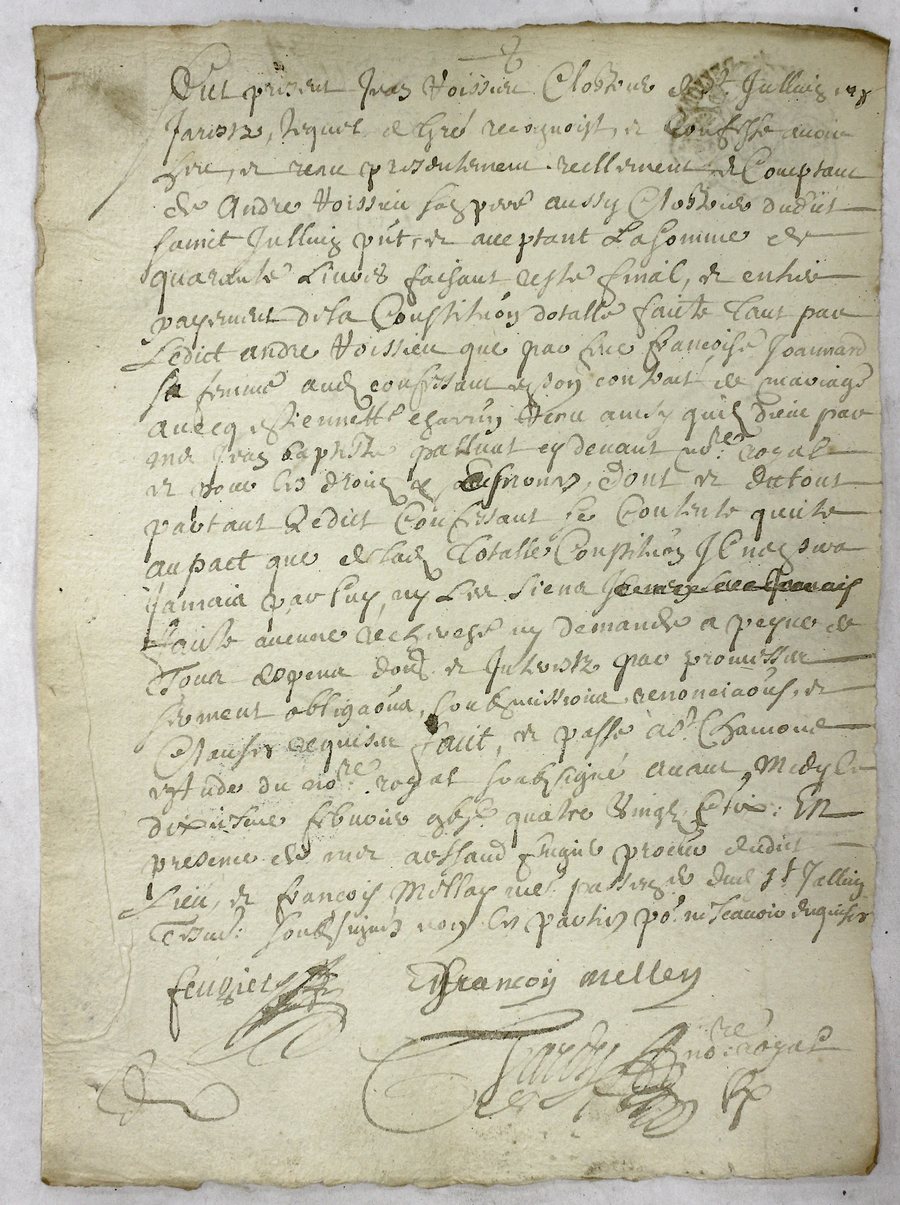 Fut present Jean Voissieu Clostrie de St Jullien en
Jarestz, lequel de gré recognoist, et confesse avoir
heu, et receu presentement reellement et Comptant
de Andre Voissieu son pere aussy Clostrie dudit
sainct Jullien pnt, et aceptant La Somme de
quarante Livres faisant reste final, et entier
payement de la Constitūōn dotalle faicte tant par
Ledict andre Voissieu que par feue francoise Joannard
sa femme aud confessant en son contrait de mariage
avecq estiennette receu par
me Jean baptiste palluat cy devant nore royal
et pour les droits dont et du tout
partant Ledict Confessant se Contente quitte
au pact que de lad totalle Constitūōn Il ne sera
Jamais par luy, ny Les siens
faicte aucune recherche ny demande a peyne de
Tous despens doms et Interestz par promesses
serment obligaōns, soubmissions renonciaōns, et
Clauses requises faict, et passé a St Chamond
estude du nore royal soubsigné avant Midy le
dixiesme febvrier gbjc quatre vingt dix: En
presence de me procur dudict
Lieu, et francois Mellay dud St Jullien
Tesm: soubsignés non les parties po: ne scavoir enquises
francois melley
nore royal